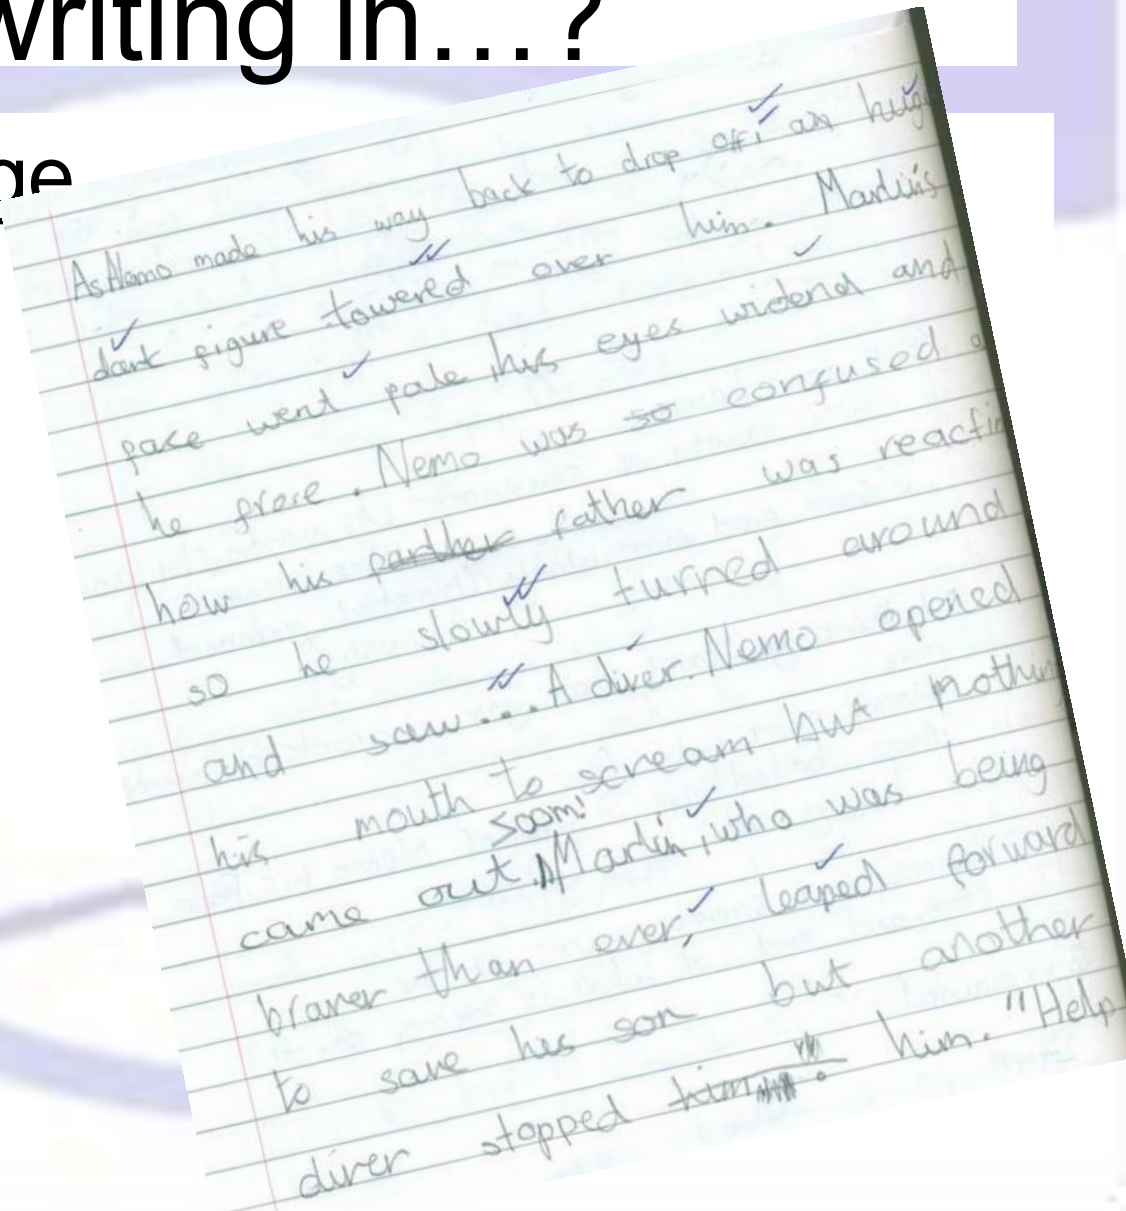 writing in...?
ge
As Nemo made his way back to drop off, an hug
dark figure towered over him. Marlin's
face went pale, his eyes widend and
he froze. Nemo was so confused
how his farther father was reactin
so he slowly turned around
and saw... A diver. Nemo opened
his mouth to scream but nothing
soom!
came out. Marlin, who was being
braver than ever, leaped forward
to save his son but another
diver stopped him him. "Help